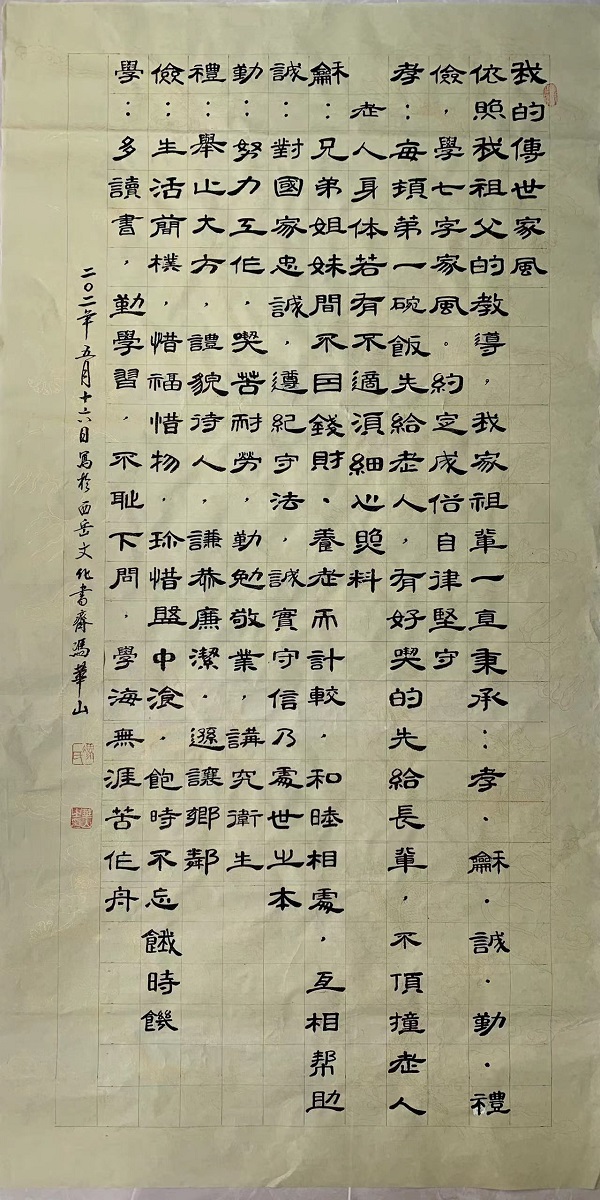 我的傳世家風
依照我祖父的教導，我家祖輩一直秉承：孝·龢·誠·勤·禮
儉，學七字家風。約定成俗自律堅守
孝：每頓第一碗飯先給老人，有好喫的先給長輩，不頂撞老人
老人身体若有不適須細心照料
龢：兄弟姐妹間不因錢財·養老而計較，和睦相處，互相帮助
誠：對國家忠誠，遵紀守法，誠實守信乃處世之本
勤：努力工作，喫苦耐勞，勤勉敬業，講究衛生
禮：舉止大方，禮貌待人，謙恭廉潔，遜讓鄉鄰
儉：生活簡樸，惜福惜物，珍惜盤中飡，飽時不忘餓時饑
學：多讀書，勤學習，不耻下問，學海無涯苦作舟
二〇二一年五月十六日寫於西岳文化書齋馮華山